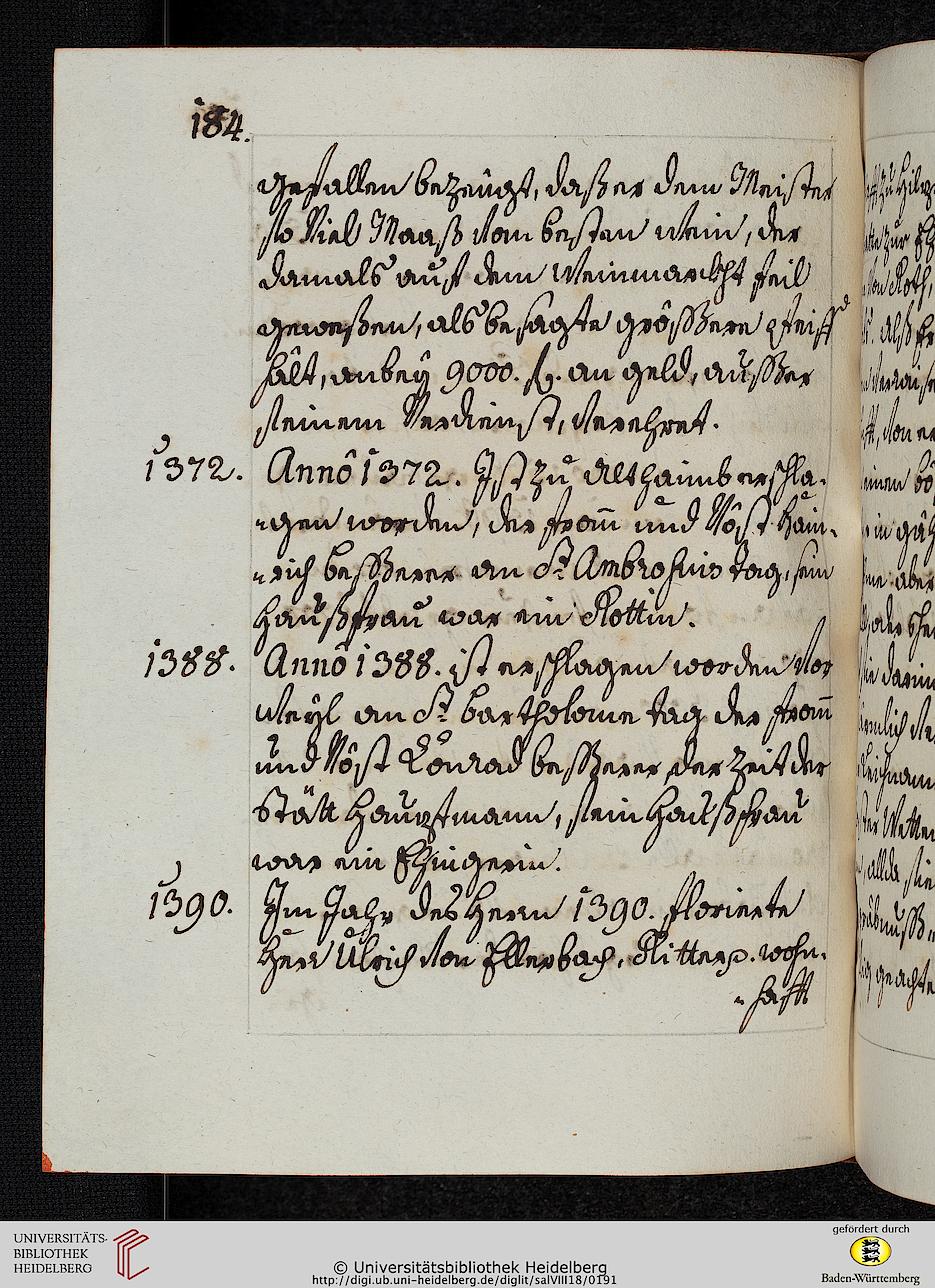 184.
gefallen bezeügt, daß er dem Meister
so Viel Maaß vom besten wein, der
damals auf dem Weinmarckht feil
geweßen, als besagte größere pfeiff
hält, anbeÿ 9000. fl. an geld, außer
seinem Verdienst, verehret.
1372. Anno 1372. Ist zu Althaimb erschla-
-gen worden, der from̄ und Vöst Hain-
-rich beßerer an St. Ambrosius tag, sein
haußfrau war ein Rottin.
1388. Anno 1388. ist erschlagen worden vor
weÿl an St. bartholome tag der from̄
und Vöst Conrad beßerer der Zeit der
Stätt Hauptmann, sein Haußfrau
war ein Ehingerin.
1390. Im Jahr des Herrn 1390. florierte
Herr Ulrich von Ellerbach, Ritter p. wohn-
-hafft
UNIVERSITÄTS-
BIBLIOTHEK
HEIDELBERG
© Universitätsbibliothek Heidelberg
http://digi.ub.uni-heidelberg.de/diglit/salVIII18/0191
gefördert durch
Baden-Württemberg